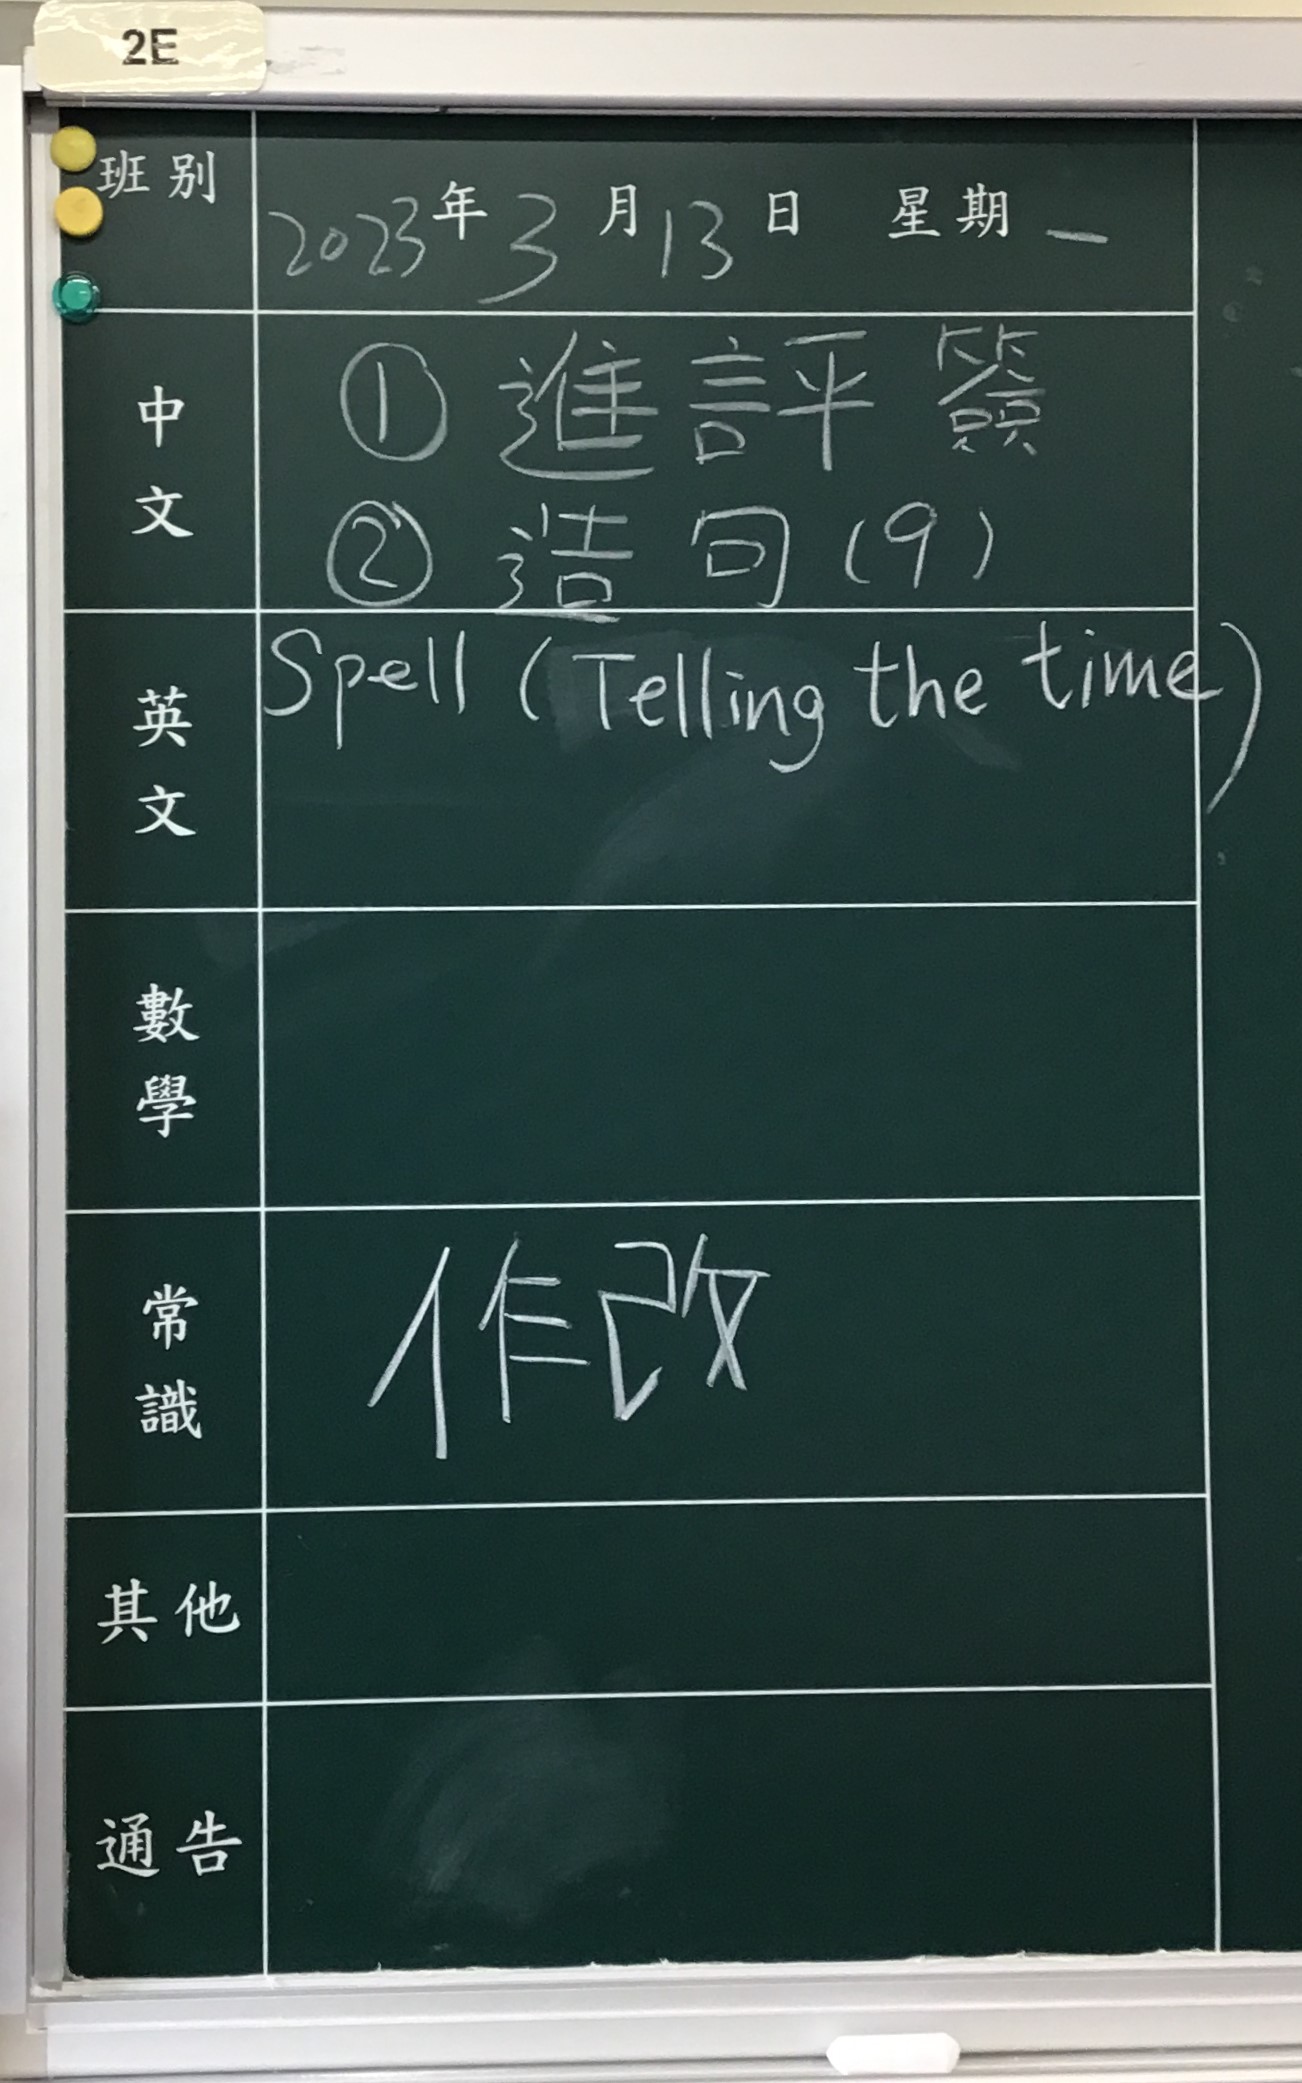 2E
班別
2023年3月13日 星期一
中文
① 進評簽
② 造句(9)
英文
Spell (Telling the time)
數學
常識
作改
其他
通告